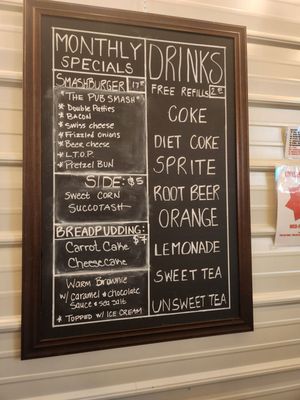 MONTHLY
SPECIALS
SMASHBURGER
"THE PUB SMASH"
* Double Patties
* BACON
* Swiss cheese
* Frizzled onions
* Beer cheese
* L.T.O.P.
* Pretzel BUN
SIDE: $5
Sweet CORN
SUCCOTASH
BREADPUDDING: $7
Carrot Cake
Cheesecake
Warm Brownie
w/ Caramel & chocolate
Sauce & sea salt
* TOPPED W/ ICE CREAM
DRINKS
FREE REFILLS
COKE
DIET COKE
SPRITE
ROOT BEER
ORANGE
LEMONADE
SWEET TEA
UNSWEET TEA